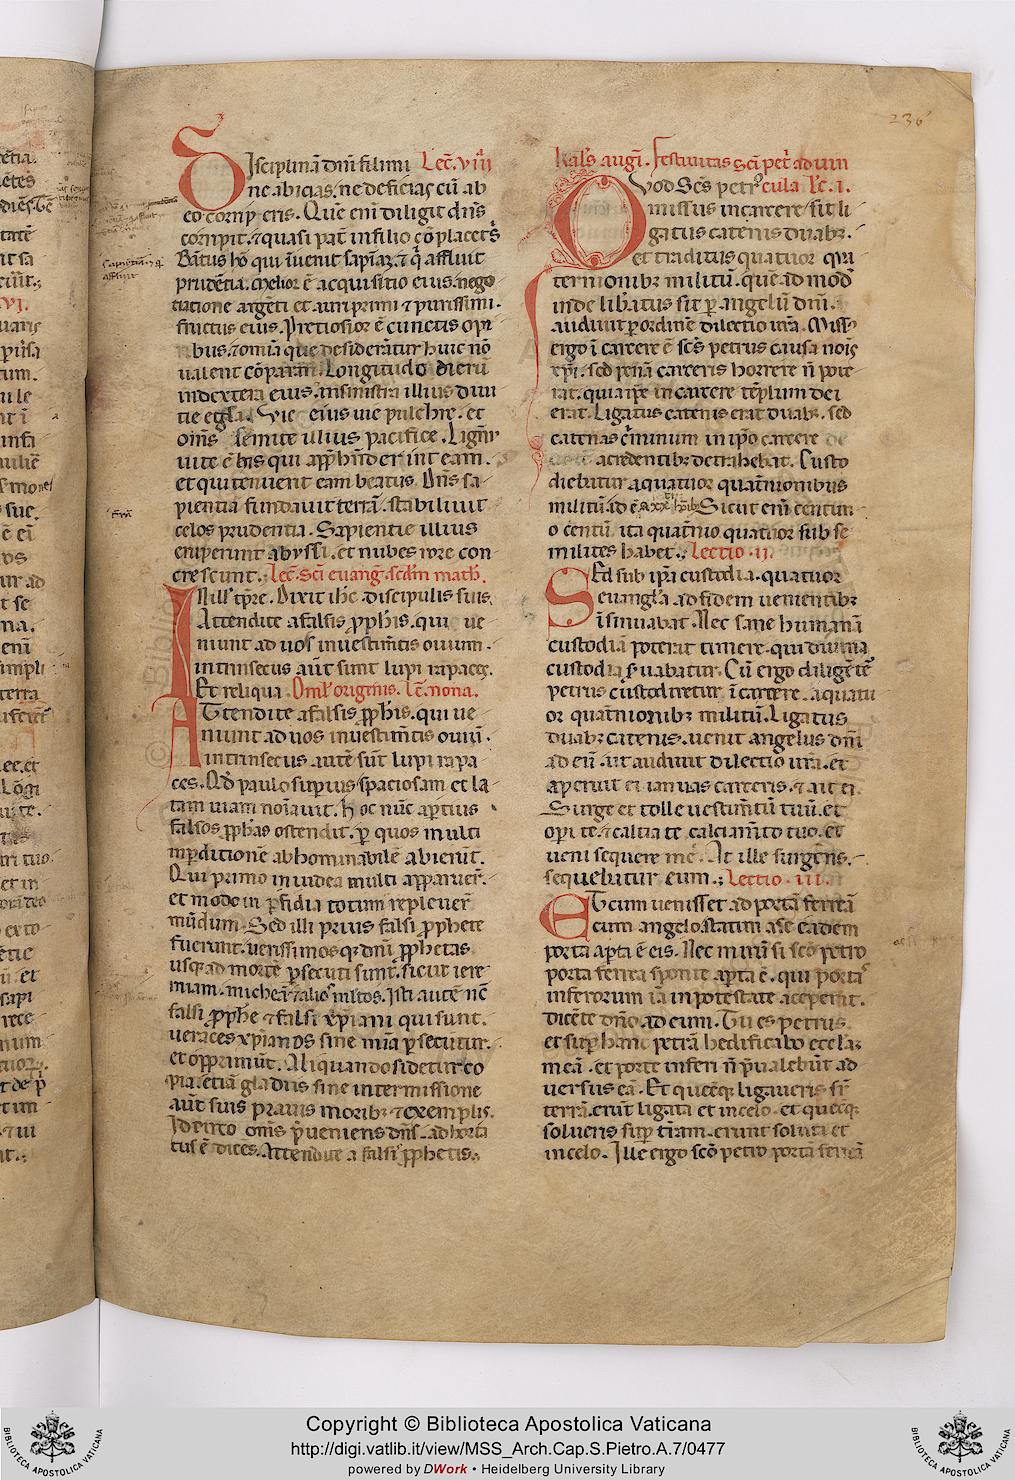 236
Disciplinā dñi fili mi Lec̄. viii
ne abicias. ne deficias cū ab
eo corriperis. Quē enī diligit dñs
corripit. ⁊ quasi pat̄ in filio cōplacet s̓
Beatus hō qui īuenit sap̄iaz. ⁊ q̓ affluit
prudētia. melior ē acquisitio eius. nego
tiatione argēti et auri primi ⁊ purissimi.
fructus eius. Pretiosior ē cunctis opi
bus. ⁊ omīa que desiderātur huic nō
ualent cōparari. Longitudo dierū
in dextera eius. in sinistra illius diui
tie et gl̄a. Vie eius uie pulchre. et
om̄s semite illius pacifice. Lignū
uite ē his qui app̄hēnderint eam.
et qui tenuerit eam beatus. Dñs sa
pientia fundauit terrā. stabiliuit
celos prudentia. Sapientie illius
eruperunt abyssi. et nubes rore con
crescunt. Lec̄. Sc̄i euanḡ. scdm math̄.
In ill̓ tp̄re. Dixit ihc discipulis suis.
Attendite a falsis ꝓphis. qui ue
niunt ad uos in uestim̄tis ouium.
intrinsecus aūt sunt lupi rapaces.
Et reliqua. Oml̓ origenis. Lc̄. nona.
Attendite a falsis ꝓphis. qui ue
niunt ad uos in uestim̄tis ouiū.
intrinsecus autē sūt lupi rapa
ces. Qd̄ paulo superius spaciosam et la
tam uiam noīauit. hoc nūc aptius
falsos ꝓphas ostendit. ꝑ quos multi
in ꝑditionē abhominabilē abierūt.
Qui primo in iudea multi apparuer̄.
et modo in ꝑfidia totum repleuer̄
mūdum. Sed illi prius falsi ꝓphete
fuerunt. uerissimos q; dñi ꝓphetas
usq; ad mortē ꝑsecuti sunt. sicut iere
miam. micheā ⁊ alios multos. Isti autē nc̄
falsi ꝓphē ⁊ falsi xp̄iani qui sunt.
ueraces xp̄ianos sine mīa ꝑsecutūr.
et opprimūt. Aliquando sidetur co
pia. etiā gladiis sine intermissione
aūt suis prauis moribꝫ ⁊ exemplis.
Idcirco om̄is p̄ueniens dn̄s. adhorta
tus ē dicēs. Attendite a falsis ꝓphetis.
Kal̄s augī. festiuitas sc̄i pet̓ ad uin
cula lc̄. i.
Quod Sc̄s petr̓
missus in carcere sit li
gatus catenis duabꝫ.
et traditus quatuor qua
ternionibꝫ militū. quē admodū
inde libatus sit ꝑ angelū dñi.
audiuit ꝑ ordinē dilectio ur̄a. Miss̓
ergo ī carcere ē sc̄s petrus causa noīs
xp̄i. sed penā carceris horrere ñ pote
rat. quia ip̄e in carcere tēplum dei
erat. Ligatus catenis erat duabꝫ. sed
catenas c̓minum in ip̄o carcere de
acredentibꝫ detrahebat. Custo
diebatur a quatuor quatn̄ionibus
militū. id ē a xx hoībꝫ Sicut enī centuri
o centū ita quatn̄io quatuor sub se
milites habet. Lectio. ii.
Sed sub ip̄i custodia. quatuor
euangl̄a ad fidem uenientibꝫ
īsinuabat. Nec sane humanā
custodiā poterat timere. qui diuina
custodia s̓uabatur. Cū ergo diligēte
petrus custodiretur ī carcere. a quatu
or quatn̄ionibꝫ militū. Ligatus
duabꝫ catenis. uenit angelus dñi
ad eū. ut audiuit dilectio ur̄a. et
aperuit ei ianuas carceris. ⁊ ait ei.
Surge et tolle uestim̄tū tuū. et
opi te. ⁊ calcia te calciam̄to tuo. et
ueni sequere me. At ille surgēns.
sequebatur eum. Lectio. iii.
Et cum uenisset ad portā ferreā
cum angelo. statim a se eadem
porta apta ē eis. Nec mirū si sc̄o petro
porta ferrea sponte apta ē. qui portas
inferorum iā in potestate acceperit.
Dicēte dn̄o. ad eum. Tu es petrus
et sup̄ hanc petrā hedificabo ecclāz
meā. et porte inferi ñ p̄ualebūt ad
uersus eā. Et quecq̄; ligaueris sr̄
terrā. erūt ligata et in celo. et quecq̄;
solueris sup̄ trām. erunt soluta et
in celo. Ille ergo sc̄o petro porta ferreā
Copyright © Biblioteca Apostolica Vaticana
http://digi.vatlib.it/view/MSS_Arch.Cap.S.Pietro.A.7/0477
powered by DWork • Heidelberg University Library
BIBLIOTECA APOSTOLICA VATICANA
BIBLIOTECA APOSTOLICA VATICANA